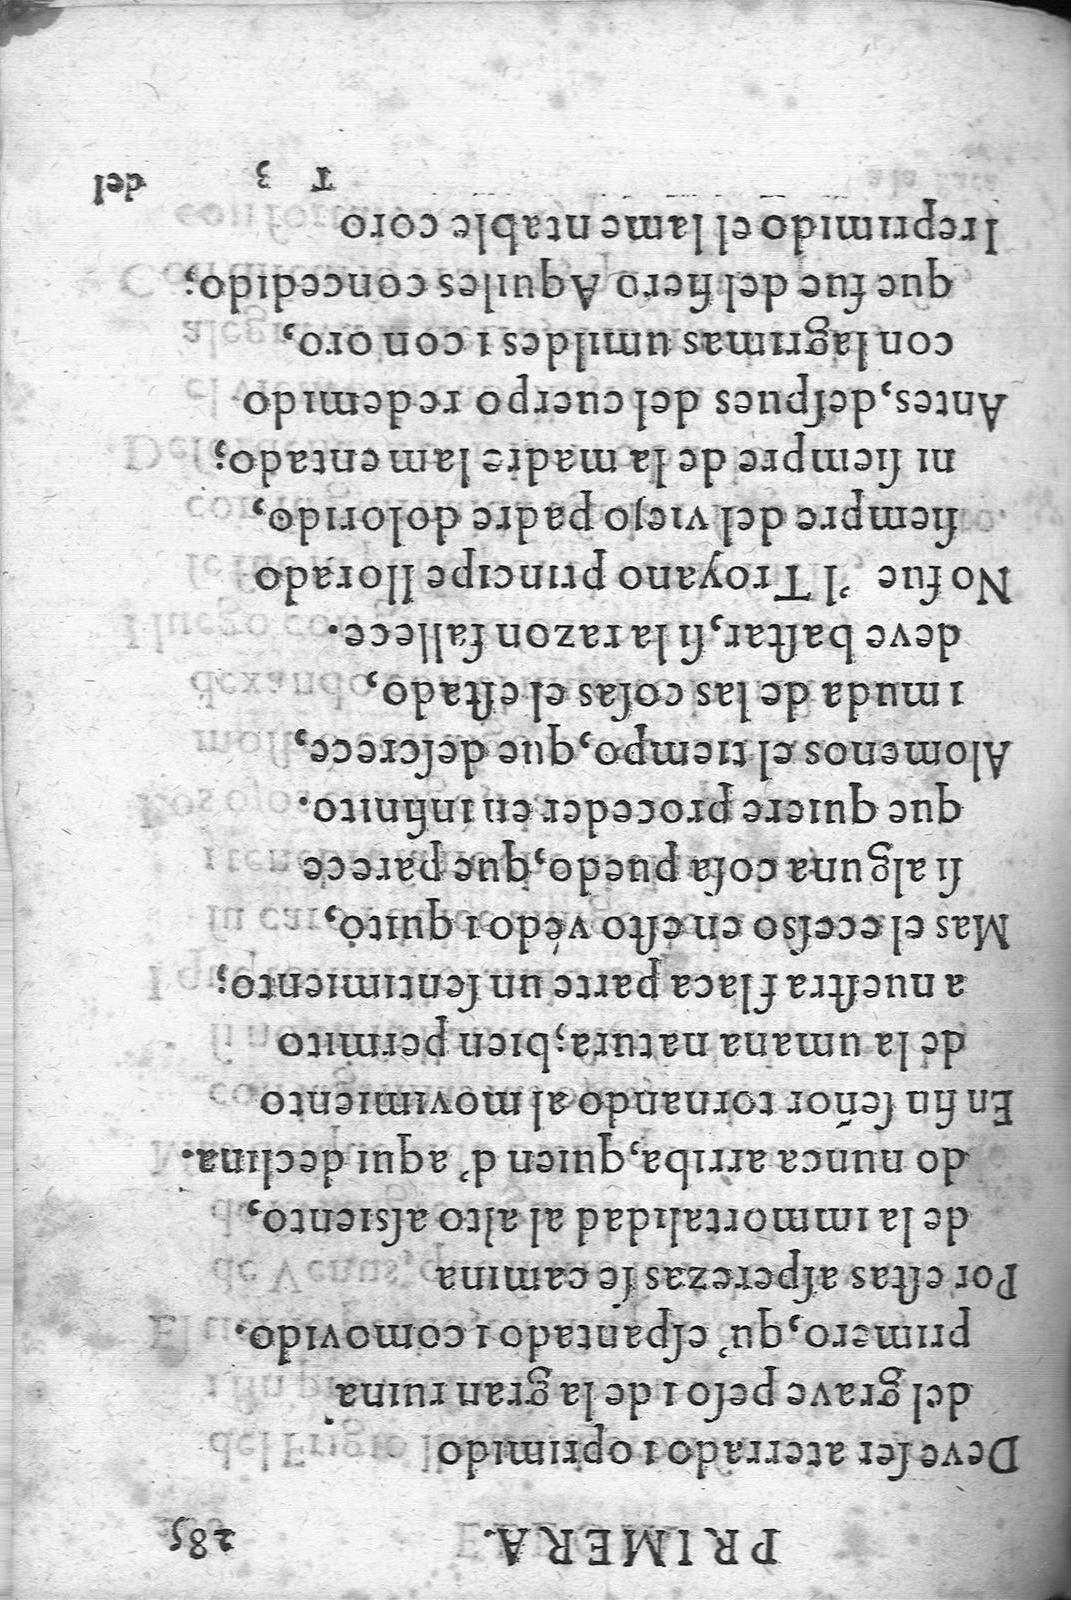 PRIMERA. 285
Deve ſer aterrado i oprimido
del grave peſo i de la gran ruina
primero, qu' eſpantado i comovido.
Por eſtas aſperezas ſe camina
de la immortalidad al alto aſsiento,
do nunca arriba, quien d' aqui declina.
En fin ſeñor tornando al movimiento
de la umana natura; bien permito
a nueſtra flaca parte un ſentimiento;
Mas el eceſso en eſto védo i quito,
ſi alguna coſa puedo, que parece
que quiere proceder en infinito.
Alomenos el tiempo, que deſcrece,
i muda de las coſas el eſtado,
deve baſtar, ſi la razon fallece.
No fue 'l Troyano principe llorado
ſiempre del viejo padre dolorido,
ni ſiempre de la madre lamentado;
Antes, deſpues del cuerpo redemido
con lagrimas umildes i con oro,
que fue del fiero Aquiles concedido;
I reprimido el lamentable coro
T 3 del